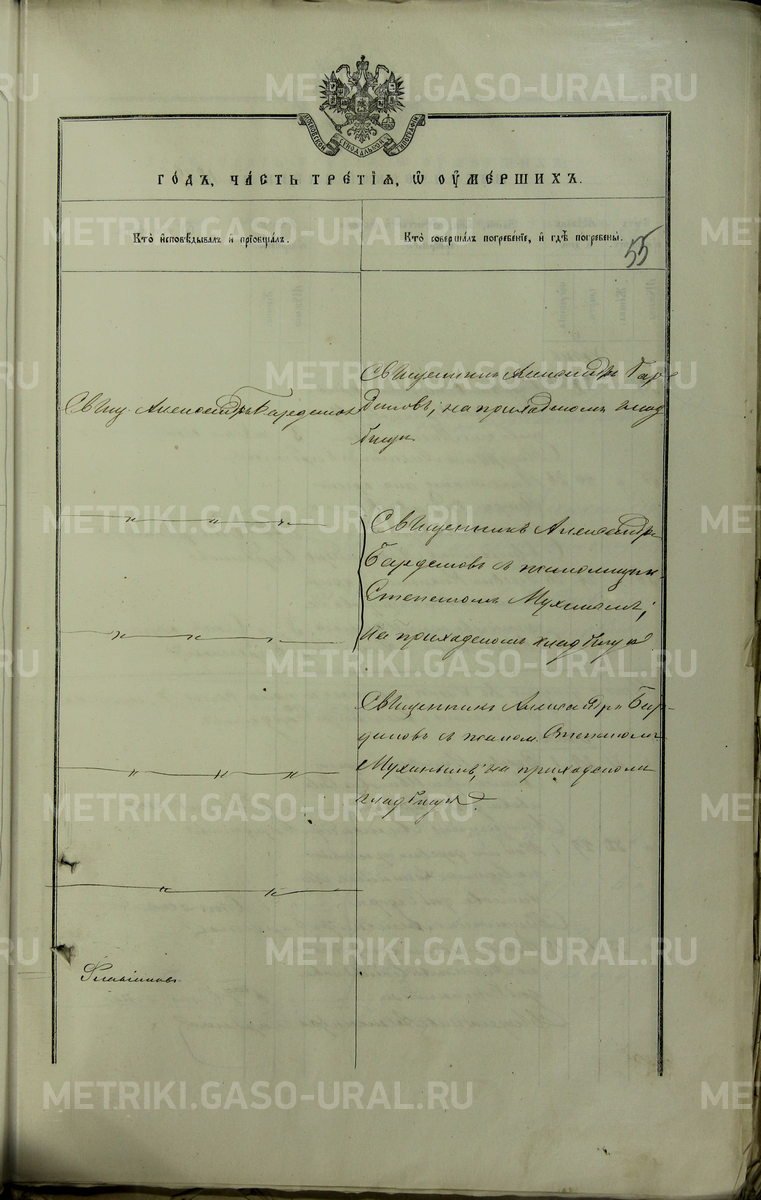 МОСКОВСКОЙ СѴНОДАЛЬНОЙ ТИПОГРАФІИ
ГО́ДЪ, ЧА́СТЬ ТРЕ́ТІѦ, Ѡ ОУ҆МЕ́РШИХЪ.
Кто̀ и҆сповѣ́дывалъ и҆ прїѡбща́лъ.
Кто̀ соверша́лъ погребе́нїе, и҆ гдѣ̀ погребены̀.
55
Священникъ Александръ Бар-
Свящ. Александръ Бардемовъ
демовъ; на приходскомъ клад
бищѣ
Священникъ Александръ
Бардемовъ съ псаломщик.
Степаномъ Мухинымъ;
На приходскомъ кладбищѣ
Священникъ Александръ Бар-
демовъ съ псалом. Степаномъ
Мухинымъ; на приходскомъ
кладбищѣ
METRIKI.GASO-URAL.RU